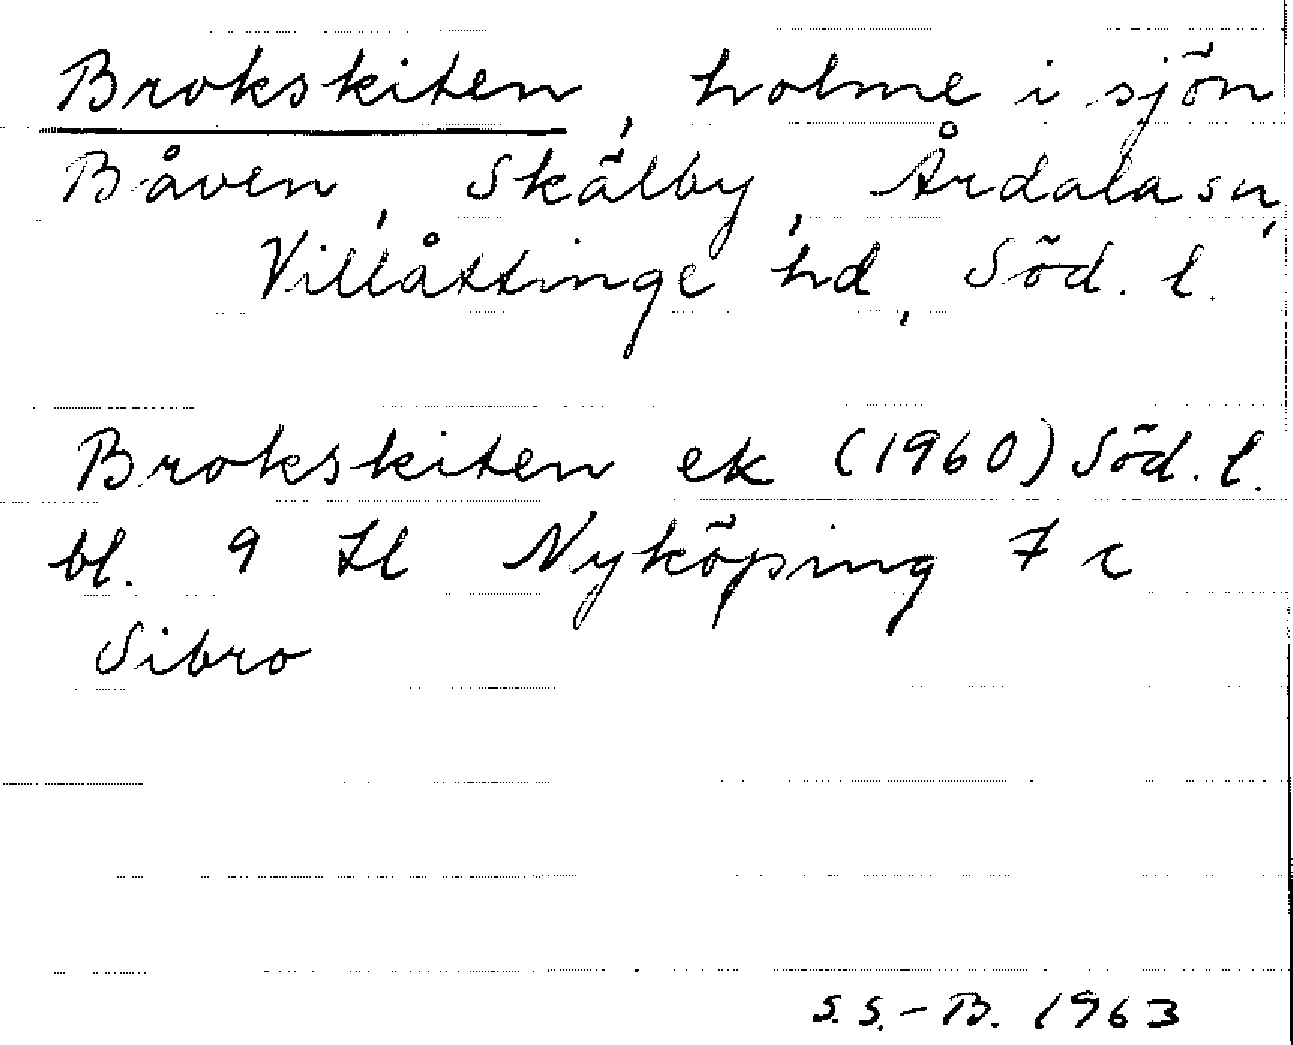 Brokskiten, holme i sjön
Båven, Skälby, Årdala sn,
Villåttinge hd, Söd. l.
Brokskiten ek (1960) Söd. l.
bl. 9 II Nyköping 7 c
Sibro
S.S.-B. 1963